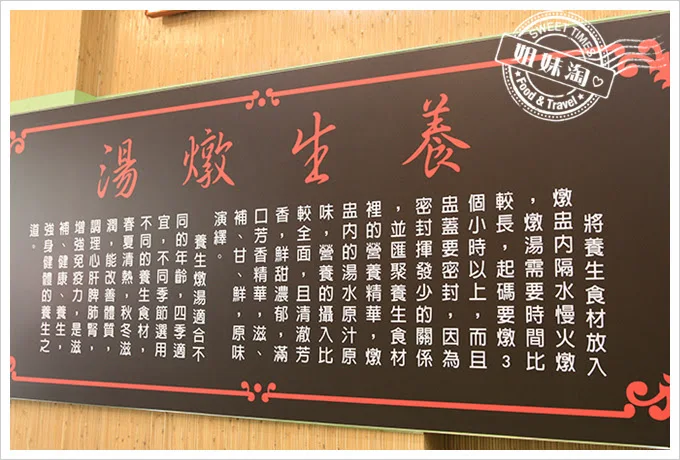 養生燉湯
將養生食材放入
燉盅內隔水慢火燉
，燉湯需要時間比
較長，起碼要燉3
個小時以上，而且
盅蓋要密封，因為
密封揮發少的關係
，並匯聚養生食材
裡的營養精華，燉
盅內的湯水原汁原
味，營養的攝入比
較全面，且清澈芳
香，鮮甜濃郁，滿
口芳香精華，滋、
補、甘、鮮，原味
演繹。
養生燉湯適合不
同的年齡，四季適
宜，不同季節選用
不同的養生食材，
春夏清熱，秋冬滋
潤，能改善體質，
調理心肝脾肺腎，
增強免疫力，是滋
補、健康、養生，
強身健體的養生之
道。
SWEET TIMES
姐妹淘
Food & Travel